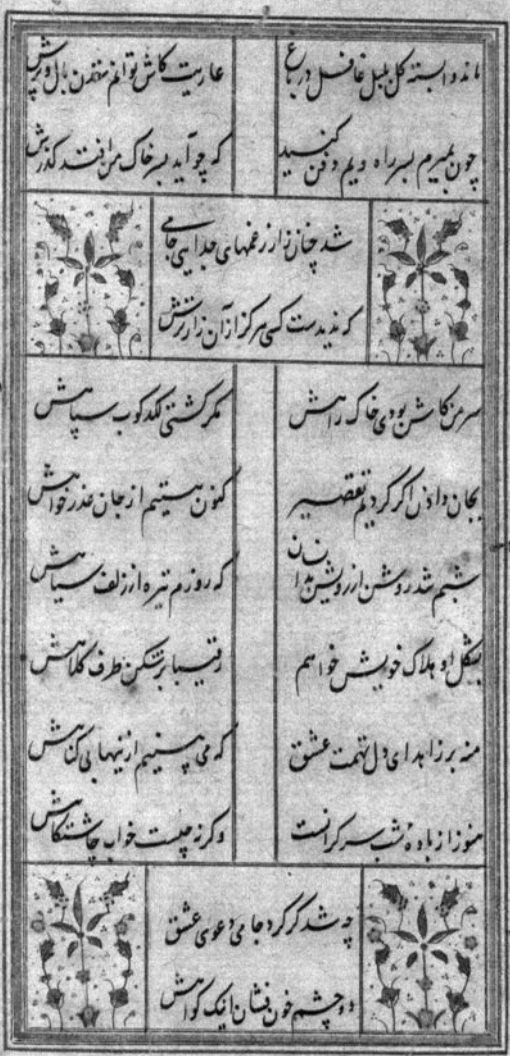 ماند وابسته کل بلبل غافل در باغ
عاریت کاش توانم ستدن بال و پرش
چون بمیرم بسر راه ویم دفن کنید
که چو آید بسر خاک من افتد کذرش
شد چنان زار ز غمهای جدایی جامی
که ندیدست کسی هرکز از آن زارترش
سر من کاش بودی خاک راهش
مکر کشتی لکدکوب سپاهش
بجان دادن اکر کردیم تقصیر
کنون هستیم از جان عذرخواهش
شبم شد روشن از روشن بدان
که روزم تیره از زلف سیاهش
بشکل او هلاک خویش خواهم
رقیبا برشکن طرف کلاهش
منه بر زاهد ای دل تهمت عشق
که می بینیم ازینها بی کناهش
هنوز از باده شب سر کرانست
وکرنه چیست خواب چاشتکاهش
چه شد کر کرد جامی دعوی عشق
دو چشم خون فشان اینک کواهش